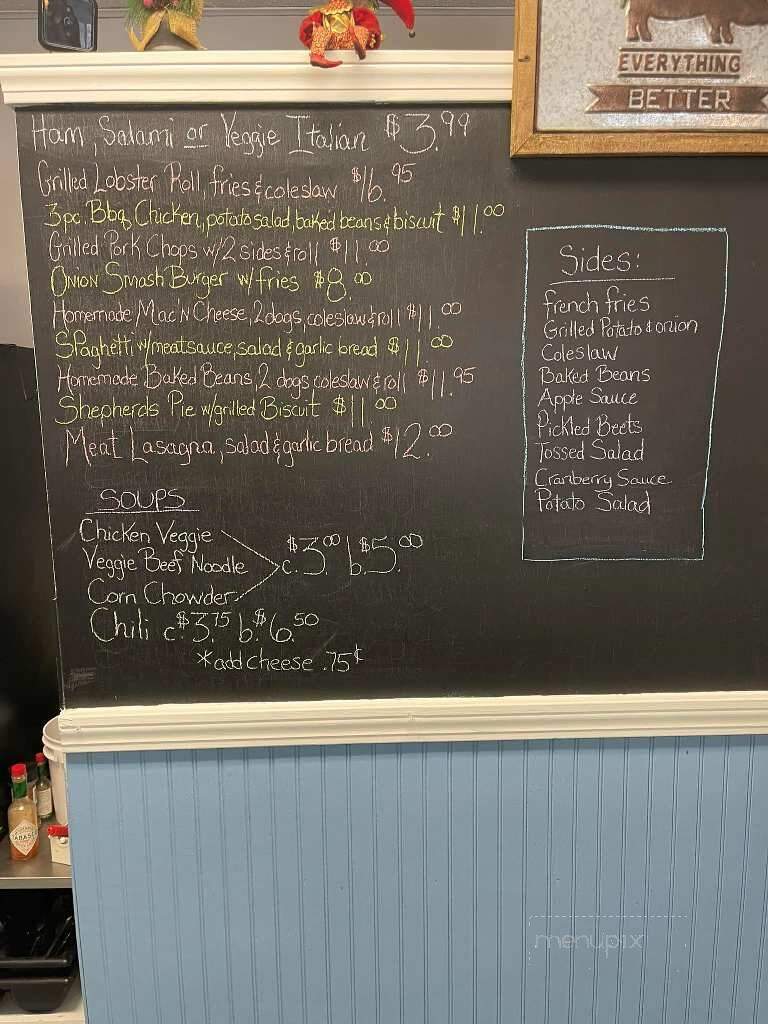 EVERYTHING
BETTER
Ham, Salami or Veggie Italian $3.99
Grilled Lobster Roll, fries & coleslaw $16.95
3pc Bbq Chicken, potato salad, baked beans & biscuit $11.00
Grilled Pork Chops w/2 sides & roll $11.00
Onion Smash Burger w/fries $8.00
Homemade Mac'N Cheese, 2 dogs, coleslaw & roll $11.00
Spaghetti w/meatsauce, salad & garlic bread $11.00
Homemade Baked Beans, 2 dogs coleslaw & roll $11.95
Shepherds Pie w/grilled Biscuit $11.00
Meat Lasagna, salad & garlic bread $12.00
SOUPS
Chicken Veggie
Veggie Beef Noodle c.$3.00 b.$5.00
Corn Chowder
Chili c.$3.75 b.$6.50
*add cheese .75¢
Sides:
french fries
Grilled Potato & onion
Coleslaw
Baked Beans
Apple Sauce
Pickled Beets
Tossed Salad
Cranberry Sauce
Potato Salad
menupix